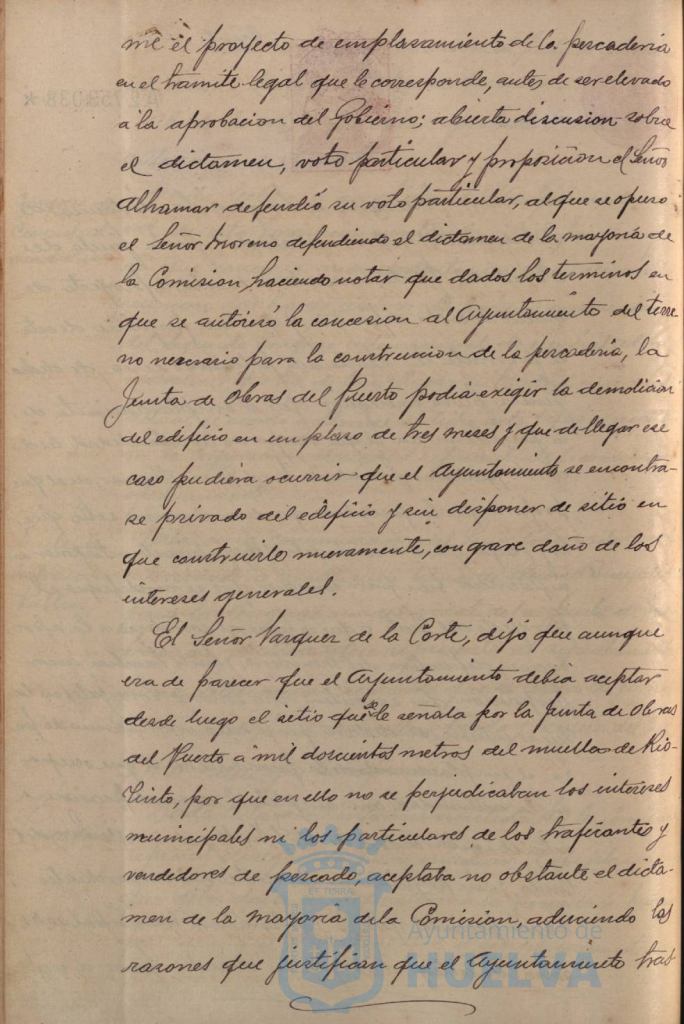 me el proyecto de emplasamiento de la pescaderia
en el tramite legal que le corresponde, antes de ser elevado
a la aprobacion del Gobierno; abierta discusion sobre
el dictamen, voto particular y proposicion el Señor
Alhamar defendió su voto particular, al que se opuso
el Señor Moreno defendiendo el dictamen de la mayoria de
la Comision haciendo notar que dados los terminos en
que se autorisó la concesion al Ayuntamiento del terre
no necesario para la construccion de la pescaderia, la
Junta de Obras del Puerto podia exigir la demolicion
del edificio en un plaso de tres meses y que de llegar ese
caso pudiera ocurrir que el Ayuntamiento se encontra-
se privado del edificio y sin disponer de sitio en
que construirlo nuevamente, con grave daño de los
intereses generales.
El Señor Vazquez de la Corte, dijo que aunque
era de parecer que el Ayuntamiento debia aceptar
desde luego el sitio que se le señala por la Junta de Obras
del Puerto á mil doscientos metros del muelle de Rio-
Tinto, por que en ello no se perjudicaban los intereses
municipales ni los particulares de los traficantes y
vendedores de pescado, aceptaba no obstante el dicta-
men de la mayoria de la Comision, aduciendo las
razones que justifican que el Ayuntamiento tras
Ayuntamiento de
HUELVA